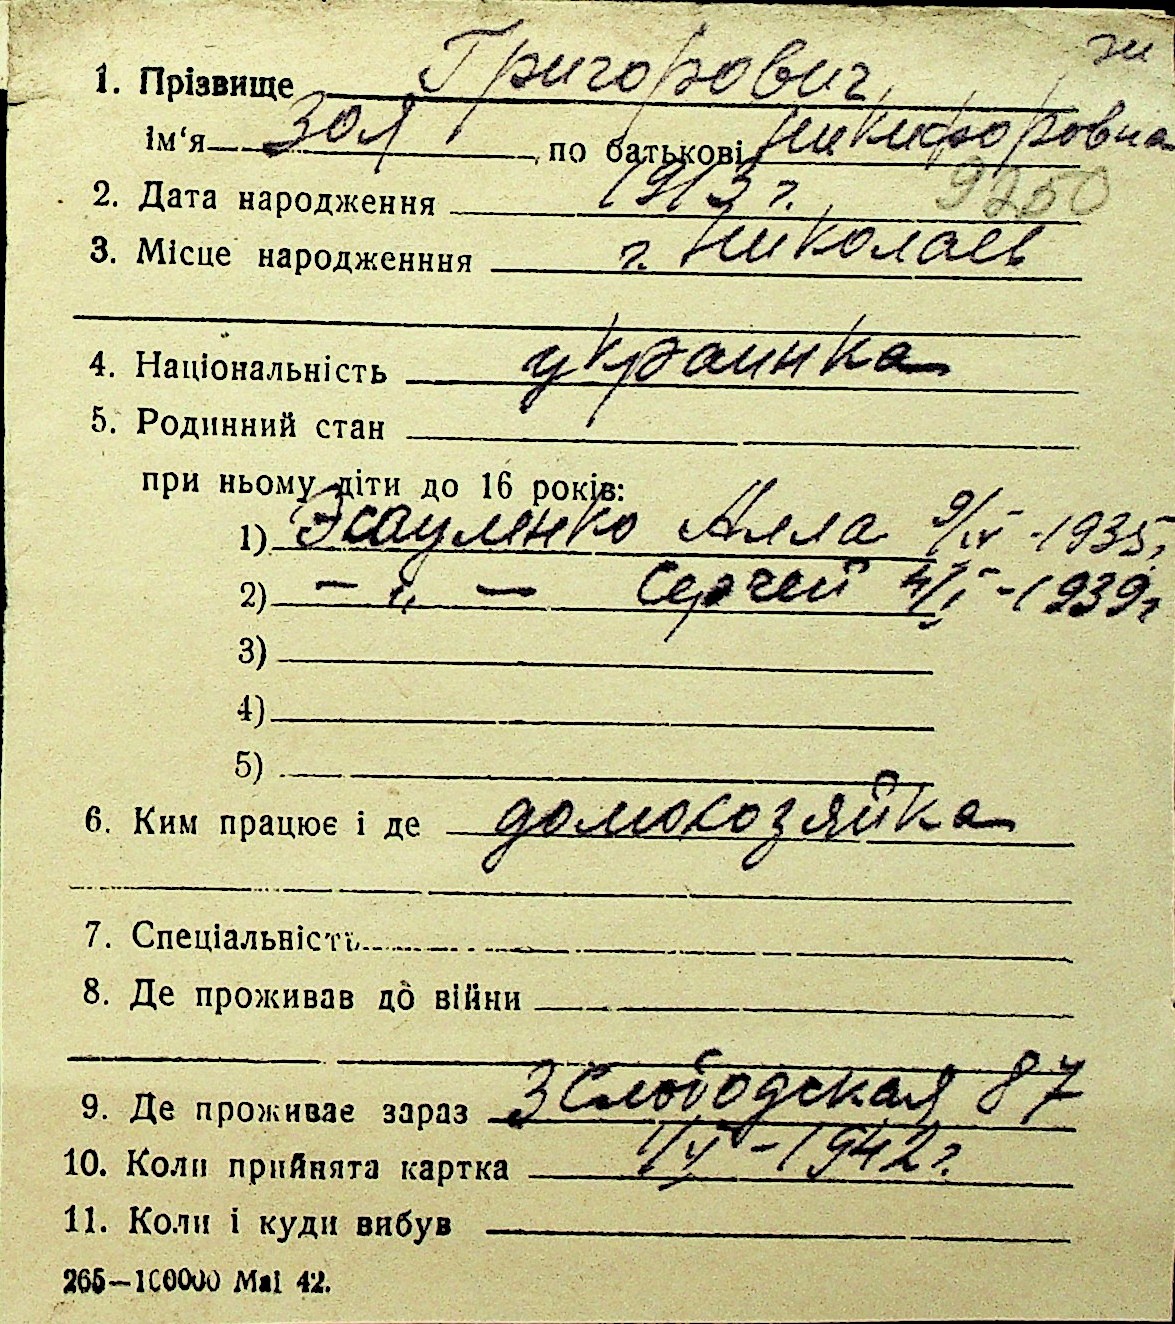 1. Прізвище Григорович
Ім‘я Зоя по батькові Никифоровна
2. Дата народження 1913 г. 9250
3. Місце народженння г. Николаев
4. Національність украинка
5. Родинний стан
при ньому діти до 16 років:
1) Эсауленко Алла 9/IV - 1935г.
2) - „ - Сергей 4/I - 1939г
3)
4)
5)
6. Ким працює і де домохозяйка
7. Спеціальність
8. Де проживав до війни
9. Де проживає зараз 3 Слободская 87
10. Коли прийнята картка - 1942 г.
11. Коли і куди вибув
265—100000 Маі 42.